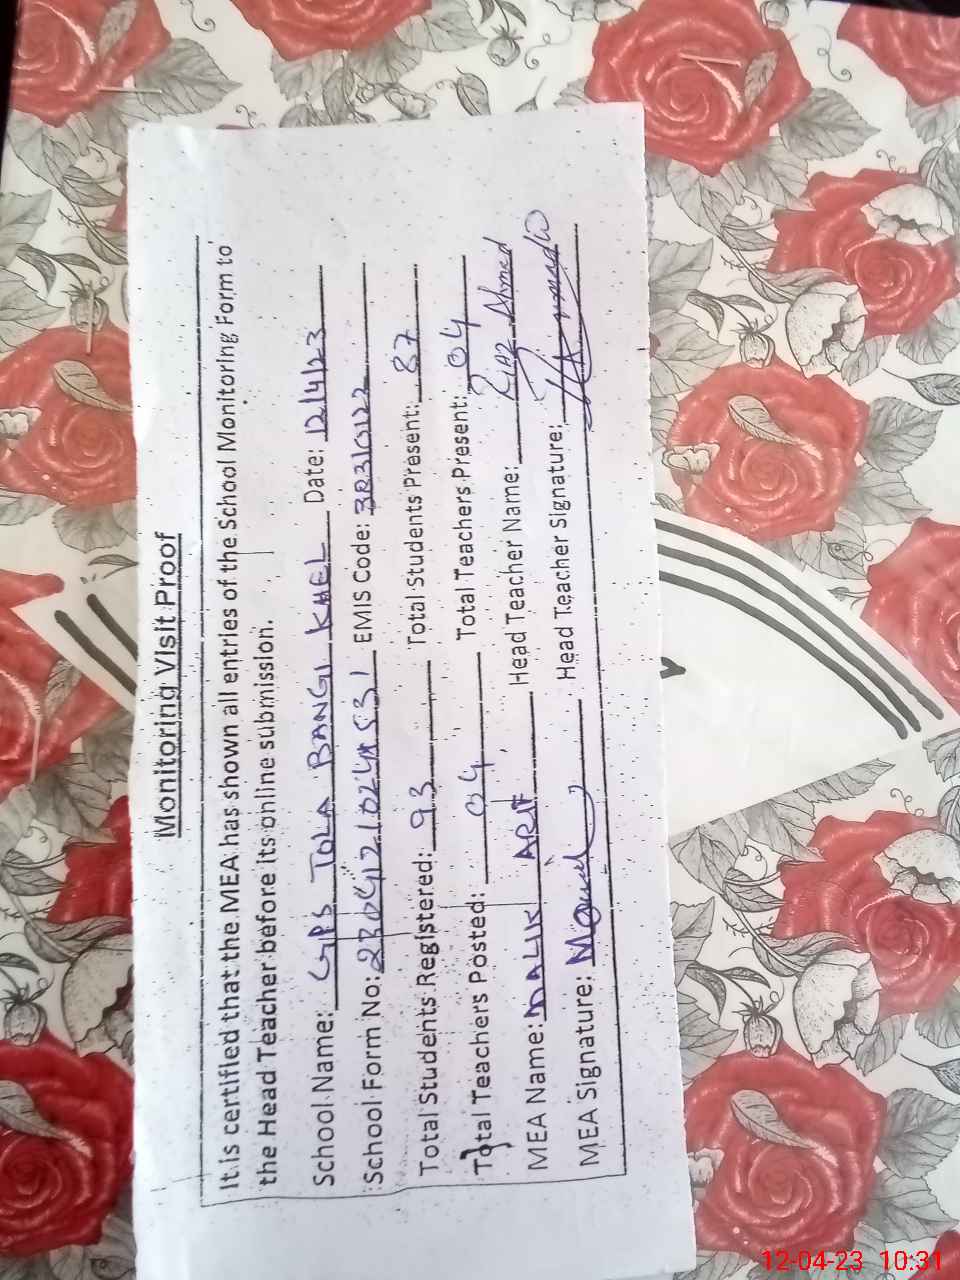 Monitoring Visit Proof
It is certified that the MEA has shown all entries of the School Monitoring Form to
the Head Teacher before its online submission.
School Name: GPS TOLA BANGI KHEL Date: 12/4/23
School Form No: EMIS Code:
Total Students Registered: 93 Total Students Present: 87
Total Teachers Posted: 04 Total Teachers Present: 04
MEA Name: MALIK ARIF Head Teacher Name: Riaz Ahmed
MEA Signature: Head Teacher Signature:
12-04-23 10:31